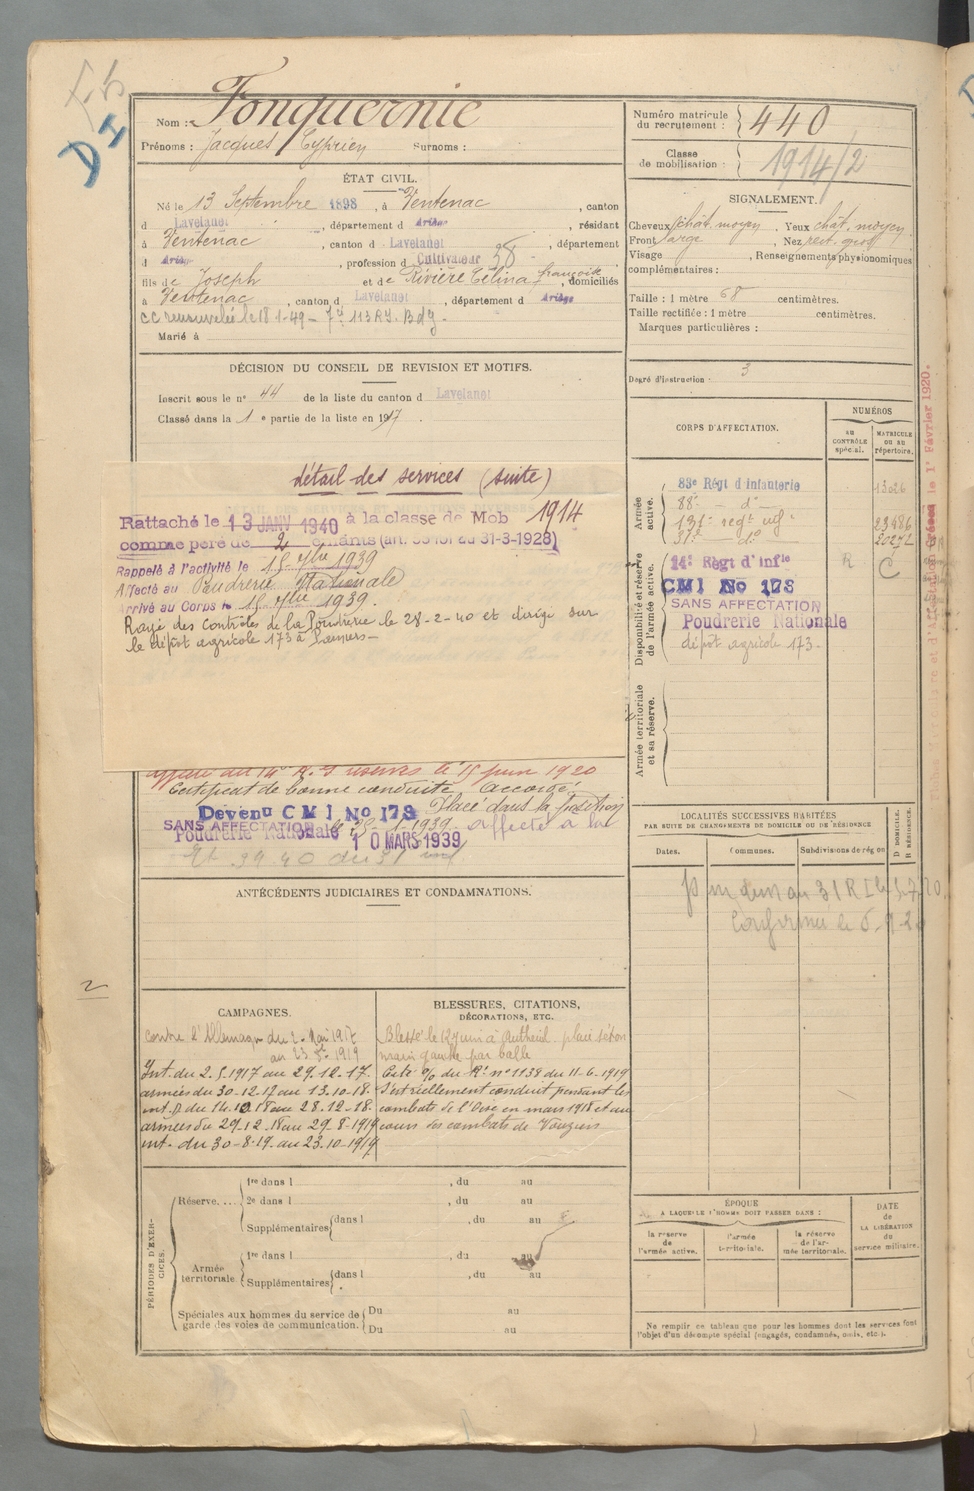 Nom : Fonquernie
Prénoms : Jacques Cyprien Surnoms :
Numéro matricule du recrutement : 440
Classe de mobilisation : 1914/2
ÉTAT CIVIL.
Né le 13 Septembre 1898, à Ventenac, canton
d Lavelanet, département d Ariège, résidant
à Ventenac, canton d Lavelanet, département
d Ariège, profession d Cultivateur 38
fils de Joseph et de Rivière Célina françoise, domiciliés
à Ventenac, canton d Lavelanet, département d Ariège
cc renouvelée le 18-1-49 - 113 RI.
Marié à
SIGNALEMENT.
Cheveux chât. moyen Yeux chât. moyen
Front large, Nez rect. gros
Visage , Renseignements physionomiques
complémentaires :
Taille : 1 mètre 68 centimètres.
Taille rectifiée : 1 mètre centimètres.
Marques particulières :
Degré d'instruction : 3
DÉCISION DU CONSEIL DE REVISION ET MOTIFS.
Inscrit sous le n° 44 de la liste du canton d Lavelanet
Classé dans la 1 e partie de la liste en 1917.
détail des services (suite)
Rattaché le 13 JANV 1940 à la classe de Mob 1914
comme père de 2 enfants (art. 58 loi du 31-3-1928)
Rappelé à l'activité le 15 7bre 1939
Affecté au Poudrerie Nationale
Arrivé au Corps le 15 7bre 1939.
Rayé des Contrôles de la Poudrerie le 28-2-40 et dirigé sur
le dépôt agricole 173 à
affecté au 14e R.I réserves le 15 juin 1920
Certificat de bonne conduite "Accordé"
Placé dans la position
Devenu CMI No 173
SANS AFFECTATION 1939 affecté à la
Poudrerie Nationale 10 MARS 1939
CORPS D'AFFECTATION.
NUMÉROS
AU CONTRÔLE spécial.
MATRICULE OU AU répertoire.
Armée active.
83e Régt d'Infanterie 13026
88e d°
131e regt inf. 23486
31e d° 20272
Disponibilité et réserve de l'armée active.
14e Régt d'Infie R C
CMI No 173
SANS AFFECTATION
Poudrerie Nationale
dépôt agricole 173-
Armée territoriale et sa réserve.
le 1er Février 1920.
LOCALITÉS SUCCESSIVES HABITÉES
PAR SUITE DE CHANGEMENTS DE DOMICILE OU DE RÉSIDENCE.
Dates. Communes. Subdivisions de région D DOMICILE. R RÉSIDENCE.
au 31 RI le 5.7.20
Confirmé le 6-9-20
ANTÉCÉDENTS JUDICIAIRES ET CONDAMNATIONS.
CAMPAGNES.
contre l'Allemagne du 2 Mai 1917
au 23 8bre 1919
Int. du 2.5.1917 au 29.12.17.
armées du 30-12-17 au 13.10.18.
int. D du 14.10.18 au 28.12.18.
armées du 29-12-18 au 29.8-1919
int. du 30-8-19. au 23.10-1919
BLESSURES, CITATIONS,
DÉCORATIONS, ETC.
Blessé le 12 juin à Autheuil plaie séton
main gauche par balle
Cité O/ du Rt n° 1138 du 11-6-1919
S'est réellement conduit pendant les
combats de l'Oise en mars 1918 et au
cours des combats de Vouziers
PÉRIODES D'EXERCICES.
Réserve....
1re dans l , du au
2e dans l , du au
Supplémentaires dans l , du au
Armée territoriale
1re dans l , du au
Supplémentaires dans l , du au
Spéciales aux hommes du service de garde des voies de communication.
Du au
Du au
ÉPOQUE
A LAQUELLE L'HOMME DOIT PASSER DANS :
la réserve de l'armée active.
l'armée territoriale.
la réserve de l'armée territoriale.
DATE de LA LIBÉRATION du service militaire.
Ne remplir ce tableau que pour les hommes dont les services font
l'objet d'un décompte spécial (engagés, condamnés, omis, etc.).